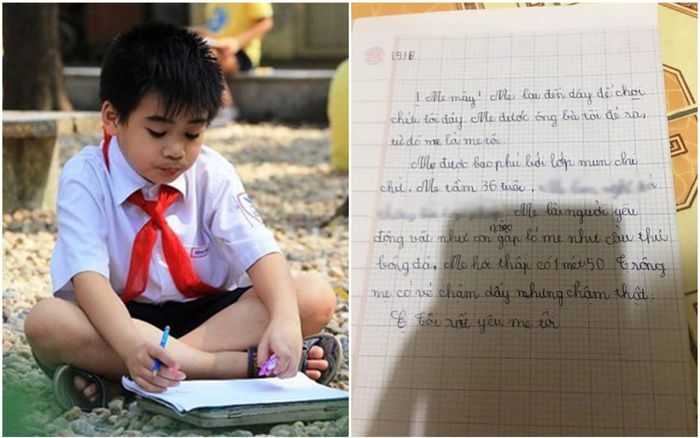 Mẹ mày! Mẹ lại đến đây để chơi
tôi đấy. Mẹ được ông bà tôi đẻ ra,
từ đó mẹ là mẹ tôi.
Mẹ được bao phủ bởi lớp mụn chi
chít. Mẹ tầm 36 tuổi,
Mẹ là người yêu
mèo
động vật như con gặp bố mẹ như cầu thủ
bóng đá. Mẹ hơi thấp có 1 mét 50. Trông
mẹ có vẻ chăm đấy nhưng chăm thật.
Tôi rất yêu mẹ tôi